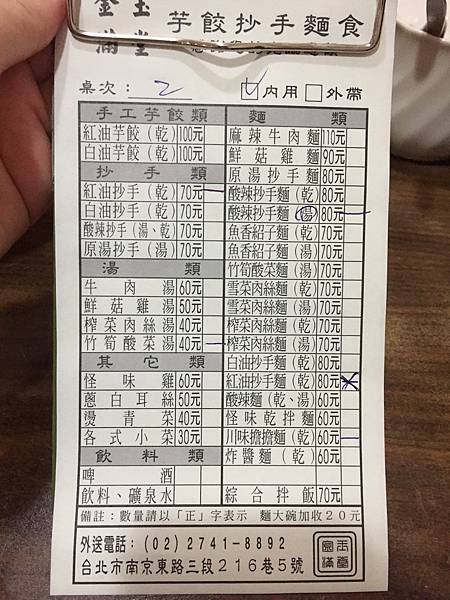 金玉滿堂 芋餃抄手麵食
桌次：2 ✓內用 □外帶
手工芋餃類
紅油芋餃(乾) 100元
白油芋餃(乾) 100元
抄手類
紅油抄手(乾) 70元 一
白油抄手(乾) 70元
酸辣抄手(湯、乾) 70元
原湯抄手(湯) 70元
湯類
牛肉湯 60元
鮮菇雞湯 50元
榨菜肉絲湯 40元
竹筍酸菜湯 40元 一
其它類
怪味雞 60元
蔥白耳絲 50元
燙青菜 40元
各式小菜 30元
飲料類
啤酒
飲料、礦泉水
麵類
麻辣牛肉麵 110元
鮮菇雞麵 90元
原湯抄手麵 80元
酸辣抄手麵(乾) 80元
酸辣抄手麵(湯) 80元 一
魚香紹子麵(乾) 70元
魚香紹子麵(湯) 70元
竹筍酸菜麵(湯) 70元
雪菜肉絲麵(乾) 70元
雪菜肉絲麵(湯) 70元
榨菜肉絲麵(乾) 70元
榨菜肉絲麵(湯) 70元
白油抄手麵(乾) 80元
紅油抄手麵(乾) 80元
酸辣麵(乾、湯) 60元
怪味乾拌麵 60元
川味擔擔麵(乾) 60元 一
炸醬麵(乾) 60元
綜合拌飯 70元
備註：數量請以「正」字表示 麵大碗加收20元
外送電話：(02)2741-8892
台北市南京東路三段216巷5號
金玉滿堂